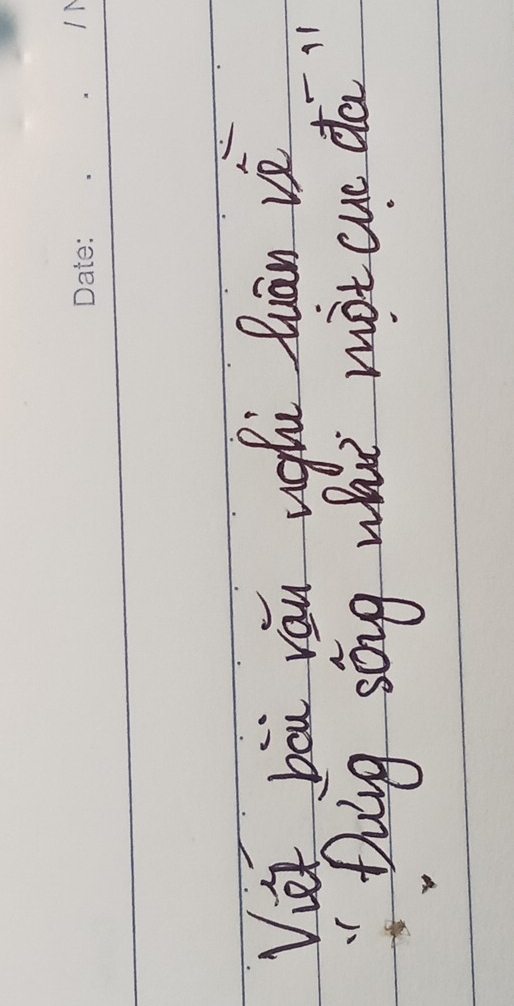 Date: . . /N
Viết bài văn nghị luận về
" Đừng sống như một cục đá"